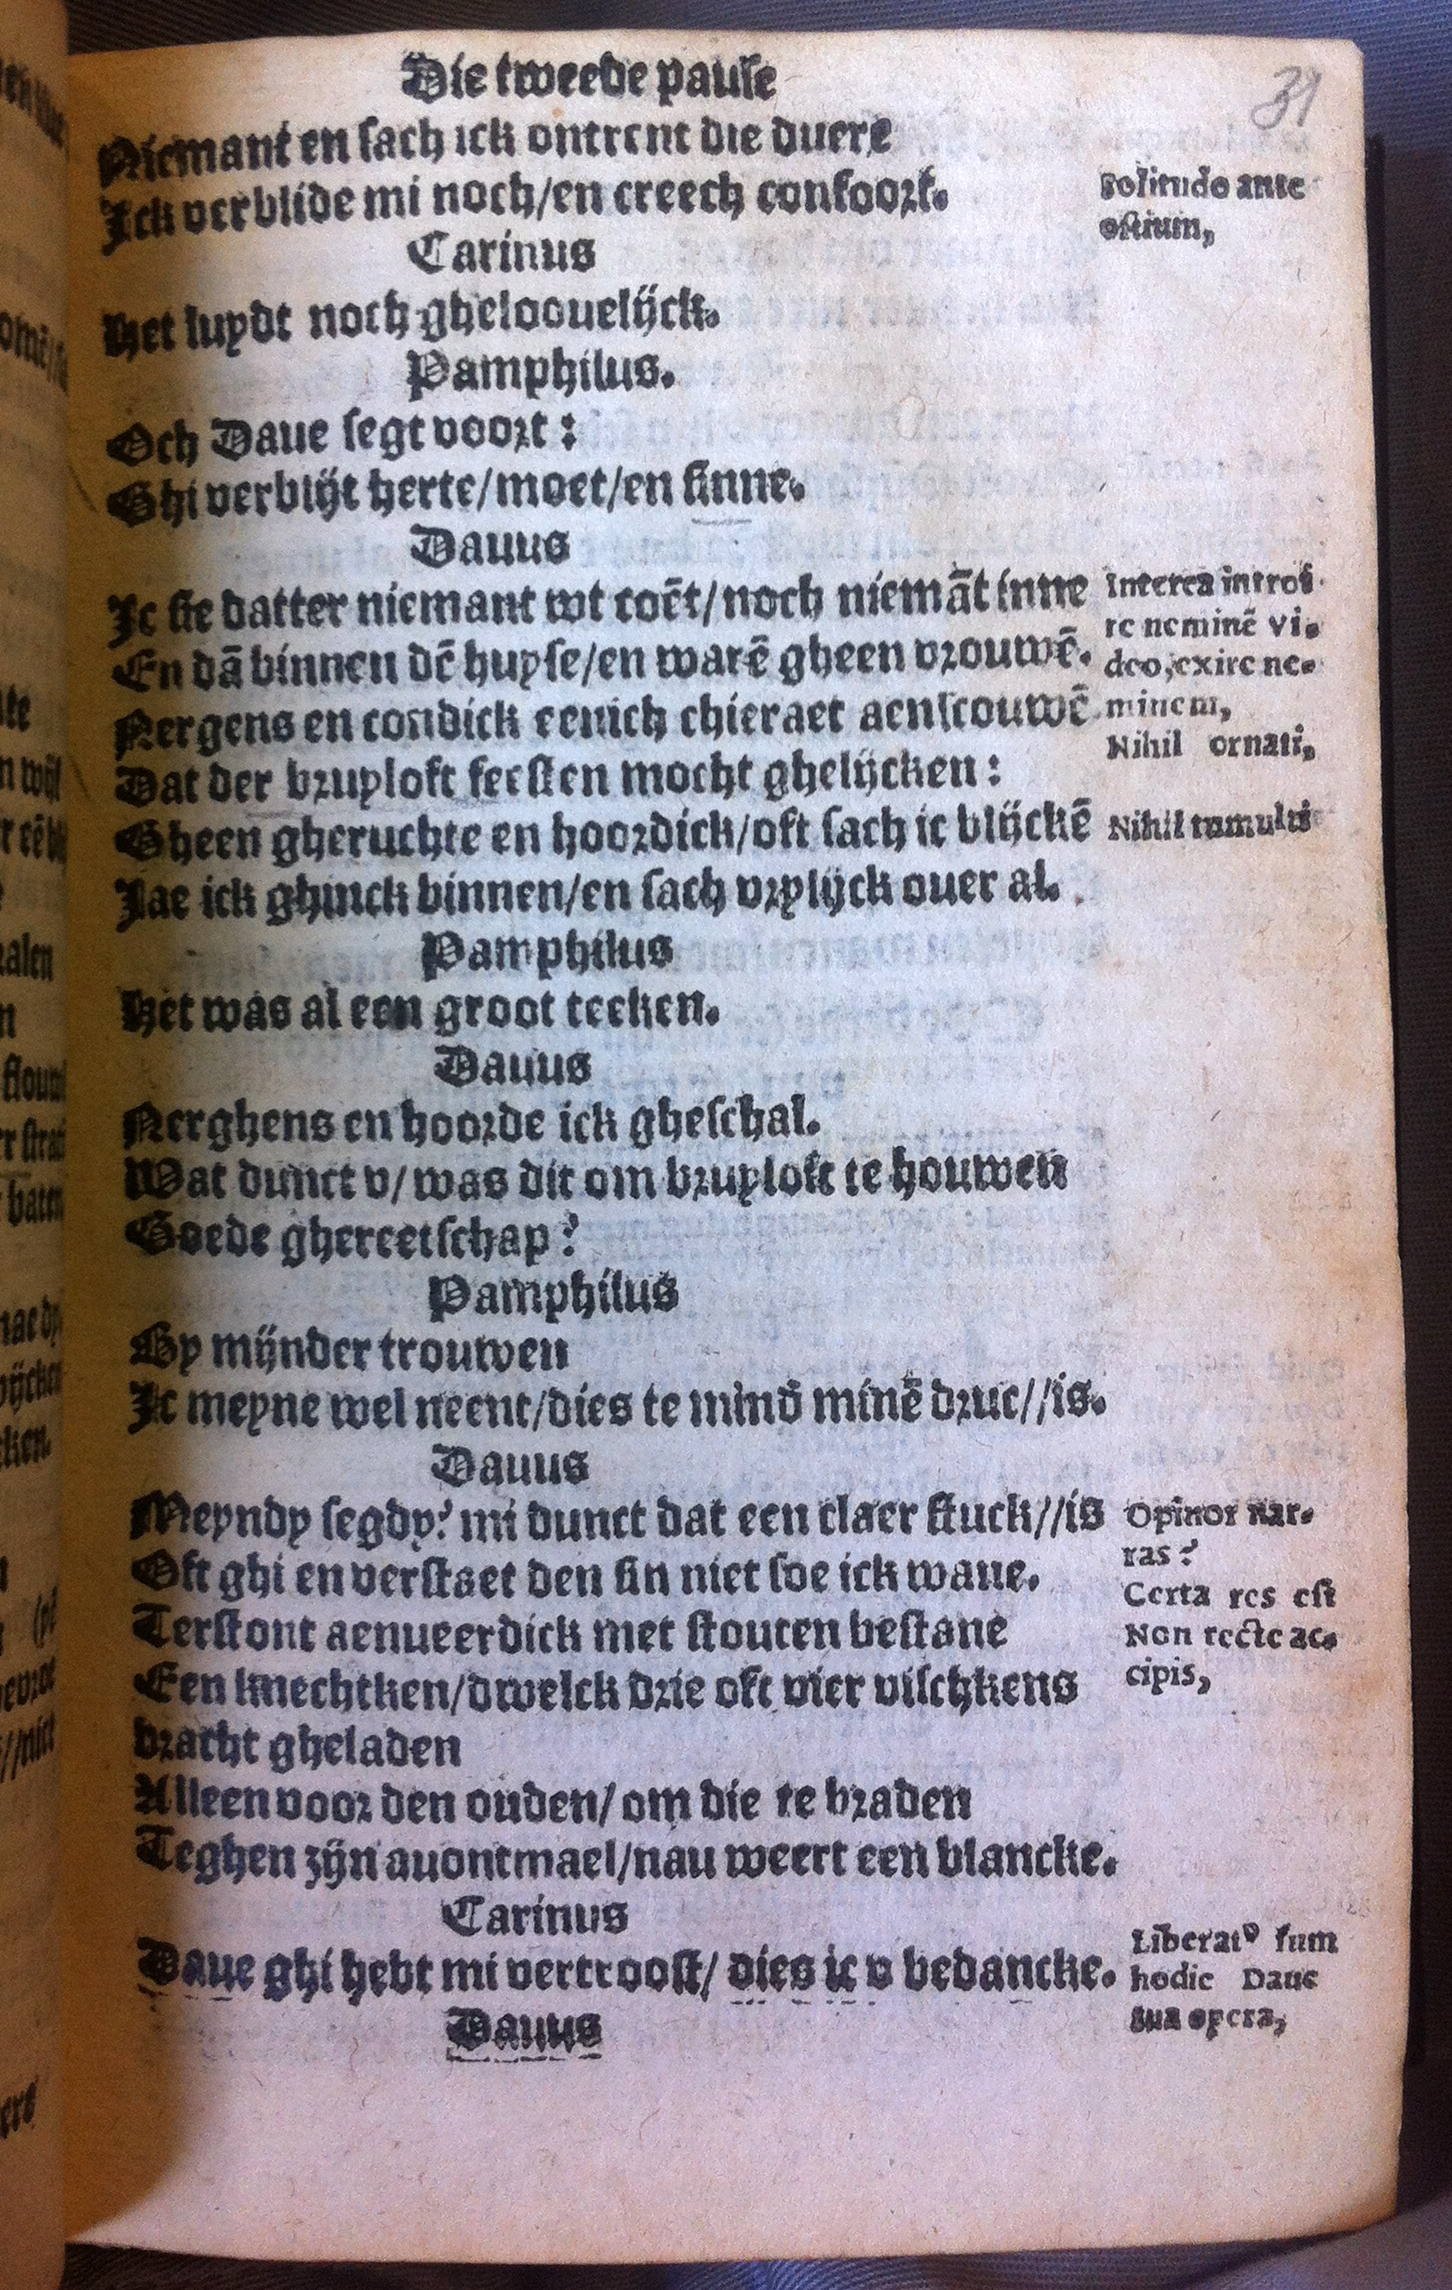 Die tweede pause
31
Niemant en sach ick ontrent die duere
Ick verblide mi noch/en creech confoort.
Solitudo ante
ostium,
Carinus
Het luydt noch gheloouelijck.
Pamphilus.
Och Daue segt voort:
Ghi verblijt herte/moet/en sinne.
Dauus
Ic sie datter niemant wt coēt/noch niemāt inne
En dā binnen dē huyse/en warē gheen vrouwē.
Nergens en condick eenich chieraet aenscouwē
Interea introi
re neminē vi-
deo, exire ne-
minem,
Nihil ornati,
Dat der bruyloft feesten mocht ghelijcken:
Gheen gheruchte en hoordick/oft sach ic blijckē
Nihil tumulti
Jae ick ghinck binnen/en sach vrylijck ouer al.
Pamphilus
Het was al een groot teeken.
Dauus
Nerghens en hoorde ick gheschal.
Wat dunct v/was dit om bruyloft te houwen
Goede ghereetschap?
Pamphilus
By mijnder trouwen
Ic meyne wel neent/dies te mind' minē druc//is.
Dauus
Meyndy segdy? mi dunct dat een claer stuck//is
Oft ghi en verstaet den sin niet soe ick wane.
Terstont aenueerdick met stouten bestane
Opinor nar-
ras?
Certa res est
Non recte ac-
cipis,
Een knechtken/dwelck drie oft vier vischkens
bracht gheladen
Alleen voor den ouden/om die te braden
Teghen zijn auontmael/nau weert een blancke.
Carinus
Daue ghi hebt mi vertroost/dies ic v bedancke.
Liberatꝰ sum
hodie Daue
tua opera,
Dauus